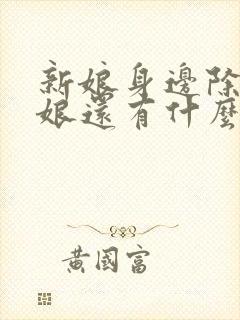 新娘身邊除
娘還有什麼
黃國富